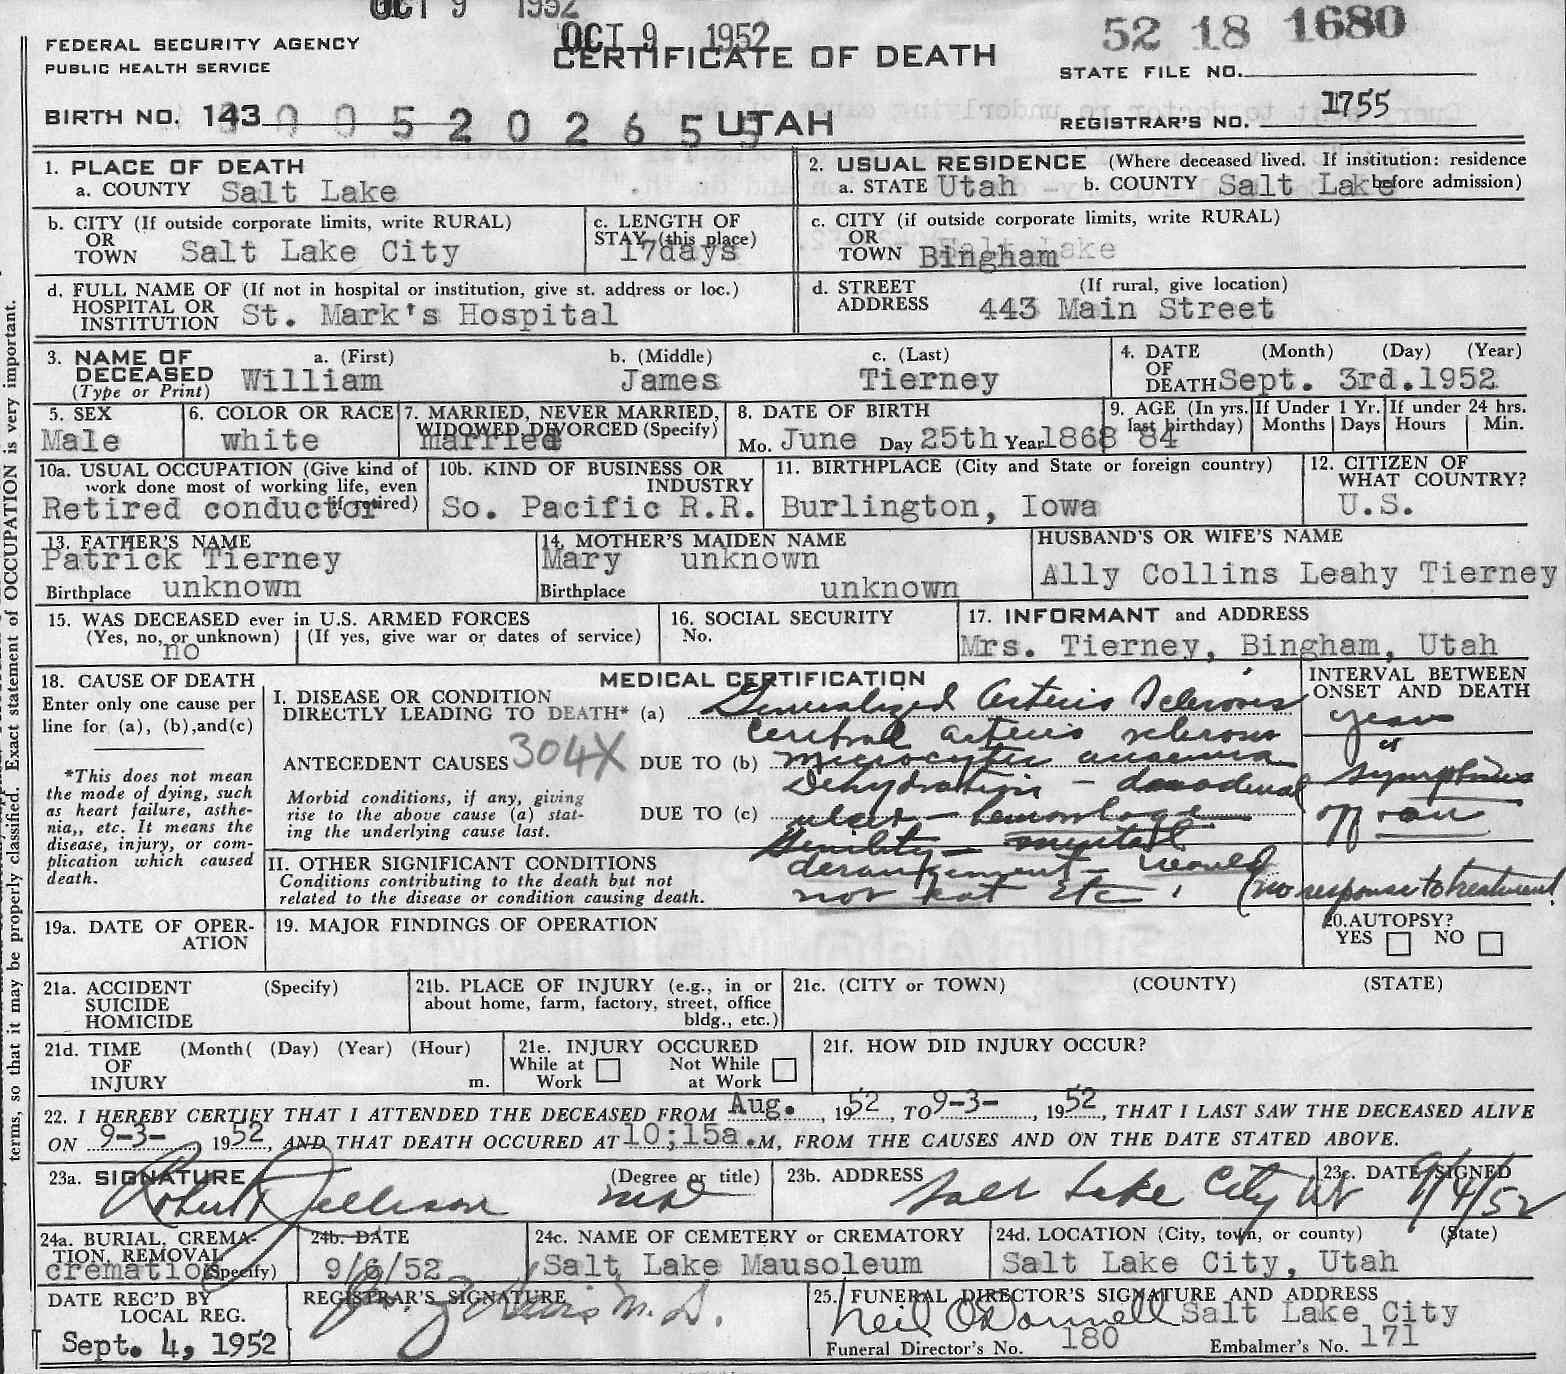 OCT 9 1952
OCT 9 1952
52 18 1680
FEDERAL SECURITY AGENCY
PUBLIC HEALTH SERVICE
CERTIFICATE OF DEATH
STATE FILE NO.
BIRTH NO. 143
0 0 5 2 0 2 6 5
UTAH
REGISTRAR'S NO. 1755
1. PLACE OF DEATH
a. COUNTY Salt Lake
2. USUAL RESIDENCE (Where deceased lived. If institution: residence before admission)
a. STATE Utah b. COUNTY Salt Lake
b. CITY (If outside corporate limits, write RURAL) OR TOWN Salt Lake City
c. LENGTH OF STAY (this place) 17days
c. CITY (if outside corporate limits, write RURAL) OR TOWN Bingham
d. FULL NAME OF (If not in hospital or institution, give st. address or loc.) HOSPITAL OR INSTITUTION St. Mark's Hospital
d. STREET ADDRESS (If rural, give location) 443 Main Street
3. NAME OF DECEASED (Type or Print)
a. (First) William b. (Middle) James c. (Last) Tierney
4. DATE OF DEATH (Month) (Day) (Year) Sept. 3rd.1952
5. SEX Male
6. COLOR OR RACE white
7. MARRIED, NEVER MARRIED, WIDOWED, DIVORCED (Specify) married
8. DATE OF BIRTH Mo. June Day 25th Year 1868
9. AGE (In yrs. last birthday) 84
If Under 1 Yr. Months Days
If under 24 hrs. Hours Min.
10a. USUAL OCCUPATION (Give kind of work done most of working life, even if retired) Retired conductor
10b. KIND OF BUSINESS OR INDUSTRY So. Pacific R.R.
11. BIRTHPLACE (City and State or foreign country) Burlington, Iowa
12. CITIZEN OF WHAT COUNTRY? U.S.
13. FATHER'S NAME Patrick Tierney
Birthplace unknown
14. MOTHER'S MAIDEN NAME Mary unknown
Birthplace unknown
HUSBAND'S OR WIFE'S NAME
Ally Collins Leahy Tierney
15. WAS DECEASED ever in U.S. ARMED FORCES
(Yes, no, or unknown) (If yes, give war or dates of service)
no
16. SOCIAL SECURITY No.
17. INFORMANT and ADDRESS
Mrs. Tierney, Bingham, Utah
18. CAUSE OF DEATH
Enter only one cause per line for (a), (b),and(c)
*This does not mean the mode of dying, such as heart failure, asthenia,, etc. It means the disease, injury, or complication which caused death.
MEDICAL CERTIFICATION
I. DISEASE OR CONDITION DIRECTLY LEADING TO DEATH* (a) Generalized Arterio Sclerosis
cerebral arterio sclerosis
ANTECEDENT CAUSES 304X DUE TO (b) microcytic anaemia
Dehydration - duodenal
Morbid conditions, if any, giving rise to the above cause (a) stating the underlying cause last.
DUE TO (c) ulcer - hemorrhage
Senility - mental
II. OTHER SIGNIFICANT CONDITIONS
Conditions contributing to the death but not related to the disease or condition causing death.
derangement - would
not eat etc. (no response to treatment
INTERVAL BETWEEN ONSET AND DEATH
years
of
symptoms
19a. DATE OF OPERATION
19. MAJOR FINDINGS OF OPERATION
20. AUTOPSY? YES NO
21a. ACCIDENT SUICIDE HOMICIDE (Specify)
21b. PLACE OF INJURY (e.g., in or about home, farm, factory, street, office bldg., etc.)
21c. (CITY or TOWN) (COUNTY) (STATE)
21d. TIME OF INJURY (Month( (Day) (Year) (Hour) m.
21e. INJURY OCCURED While at Work Not While at Work
21f. HOW DID INJURY OCCUR?
22. I HEREBY CERTIFY THAT I ATTENDED THE DECEASED FROM Aug. , 1952, TO 9-3- , 1952, THAT I LAST SAW THE DECEASED ALIVE
ON 9-3- , 1952, AND THAT DEATH OCCURED AT 10;15a.M, FROM THE CAUSES AND ON THE DATE STATED ABOVE.
23a. SIGNATURE (Degree or title)
Robert Jellison MD
23b. ADDRESS Salt Lake City Ut
23c. DATE SIGNED 9/4/52
24a. BURIAL, CREMATION, REMOVAL (Specify) cremation
24b. DATE 9/6/52
24c. NAME OF CEMETERY or CREMATORY Salt Lake Mausoleum
24d. LOCATION (City, town, or county) (State) Salt Lake City, Utah
DATE REC'D BY LOCAL REG. Sept. 4, 1952
REGISTRAR'S SIGNATURE
M.D.
25. FUNERAL DIRECTOR'S SIGNATURE AND ADDRESS
Neil O'Donnell Salt Lake City
Funeral Director's No. 180 Embalmer's No. 171
terms, so that it may be properly classified. Exact statement of OCCUPATION is very important.